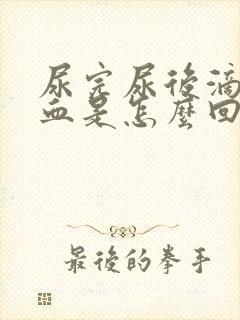 尿完尿後滴
血是怎麼回
最後的拳手